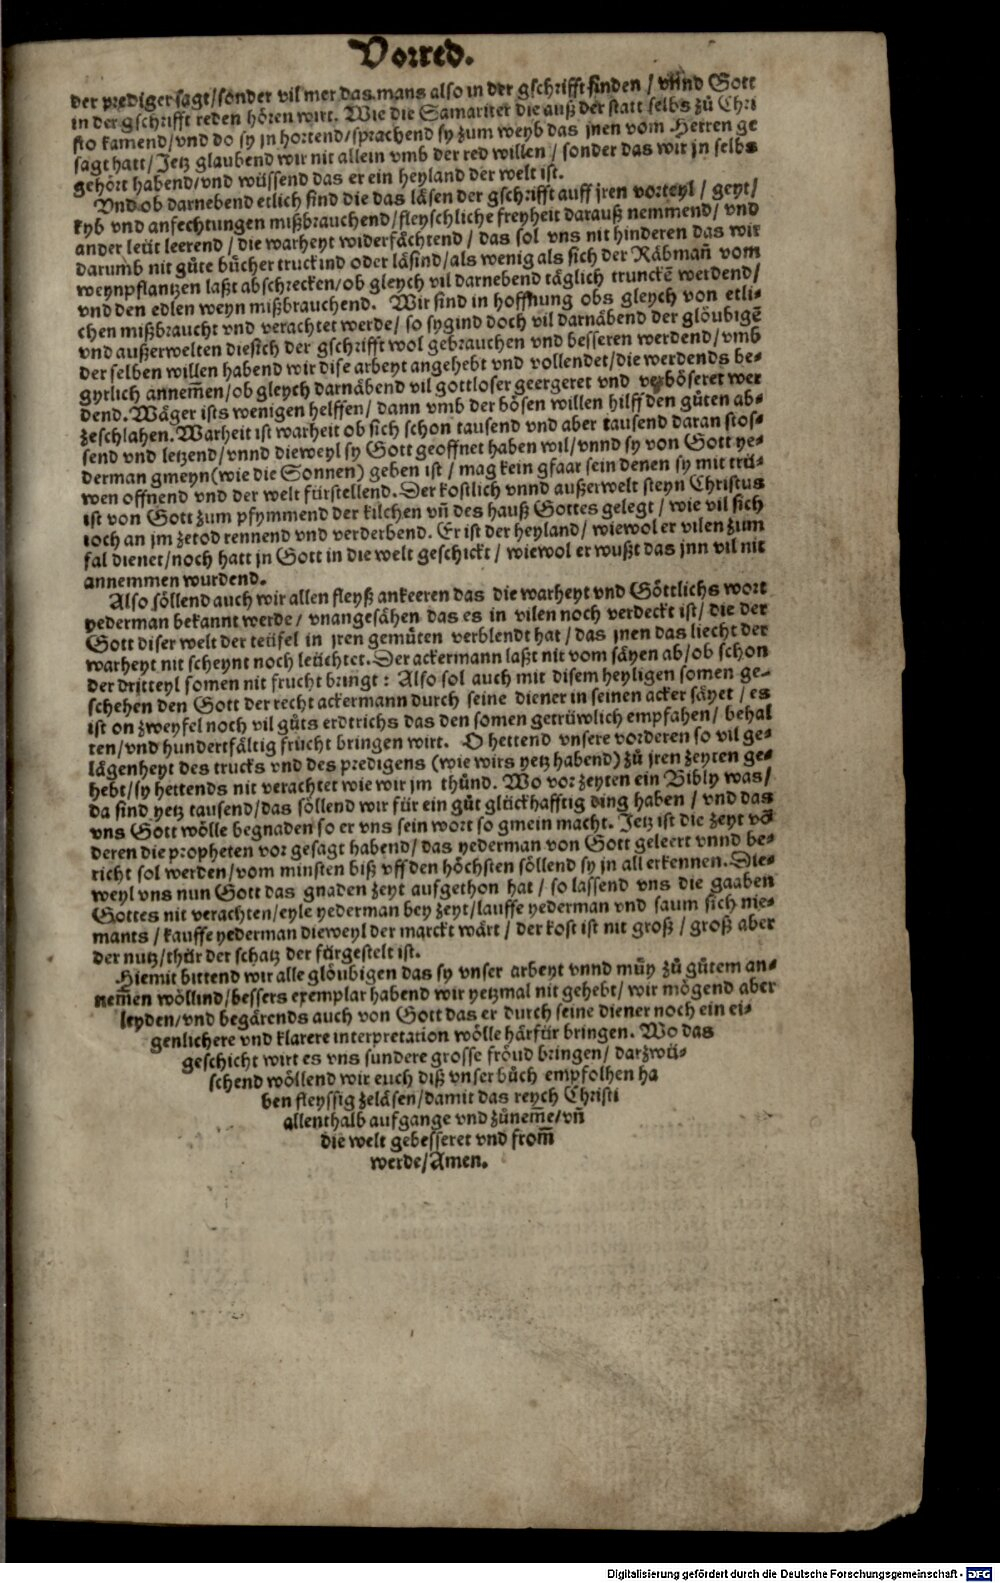 Vorred.
der prediger sagt/sonder vil mer das mans also in der gschrifft finden / vnnd Gott
in der gschrifft reden hören wirt. Wie die Samariter die auß der statt selbs zů Chri
sto kamend/vnd do sy jn hortend/sprachend sy zum weyb das jnen vom Herren ge
sagt hatt/Jetz glaubend wir nit allein vmb der red willen / sonder das wir jn selbs
gehört habend/vnd wüssend das er ein heyland der welt ist.
Vnd ob darnebend etlich sind die das läsen der gschrifft auff jren vorteyl / geyt/
kyb vnd anfechtungen mißbrauchend/fleyschliche freyheit darauß nemmend/ vnd
ander leüt leerend / die warheyt widerfächtend / das sol vns nit hinderen das wir
darumb nit gůte bůcher truckind oder läsind/als wenig als sich der Räbmañ vom
weynpflantzen laßt abschrecken/ob gleych vil darnebend täglich trunckē werdend/
vnd den edlen weyn mißbrauchend. Wir sind in hoffnung obs gleych von etli-
chen mißbraucht vnd verachtet werde/ so sygind doch vil darnäbend der glöubigē
vnd außerwelten die sich der gschrifft wol gebrauchen vnd besseren werdend/vmb
der selben willen habend wir dise arbeyt angehebt vnd vollendet/die werdends be-
gyrlich annem̄en/ob gleych darnäbend vil gottloser geergeret vnd verböseret wer
dend. Wäger ists wenigen helffen/ dann vmb der bösen willen hilff den gůten ab-
zeschlahen. Warheit ist warheit ob sich schon tausend vnd aber tausend daran stos-
send vnd letzend/vnnd dieweyl sy Gott geoffnet haben wil/vnnd sy von Gott ye-
derman gmeyn(wie die Sonnen) geben ist / mag kein gfaar sein denen sy mit trü-
wen offnend vnd der welt fürstellend. Der kostlich vnnd außerwelt steyn Christus
ist von Gott zum pfymmend der kilchen vñ des hauß Gottes gelegt / wie vil sich
ioch an jm zetod rennend vnd verderbend. Er ist der heyland/ wiewol er vilen zum
fal dienet/noch hatt jn Gott in die welt geschickt / wiewol er wußt das jnn vil nit
annemmen wurdend.
Also söllend auch wir allen fleyß ankeeren das die warheyt vnd Göttlichs wort
yederman bekannt werde/ vnangesähen das es in vilen noch verdeckt ist/ die der
Gott diser welt der teüfel in jren gemůten verblendt hat / das jnen das liecht der
warheyt nit scheynt noch leüchtet. Der ackermann laßt nit vom säyen ab/ob schon
der dritteyl somen nit frucht bringt : Also sol auch mit disem heyligen somen ge-
schehen den Gott der recht ackermann durch seine diener in seinen acker säyet / es
ist on zweyfel noch vil gůts erdtrichs das den somen getrüwlich empfahen/ behal
ten/vnd hundertfältig frücht bringen wirt. O hettend vnsere vorderen so vil ge-
lägenheyt des trucks vnd des predigens (wie wirs yetz habend) zů jren zeyten ge-
hebt/sy hettends nit verachtet wie wir jm thůnd. Wo vor zeyten ein Bibly was/
da sind yetz tausend/das söllend wir für ein gůt glückhafftig ding haben / vnd das
vns Gott wölle begnaden so er vns sein wort so gmein macht. Jetz ist die zeyt vō
deren die propheten vor gesagt habend/ das yederman von Gott geleert vnnd be-
richt sol werden/vom minsten biß vff den höchsten söllend sy jn all erkennen. Die-
weyl vns nun Gott das gnaden zeyt aufgethon hat / so lassend vns die gaaben
Gottes nit verachten/eyle yederman bey zeyt/lauffe yederman vnd saum sich nie-
mants / kauffe yederman dieweyl der marckt wärt / der kost ist nit groß / groß aber
der nutz/thür der schatz der fürgestelt ist.
Hiemit bittend wir alle glöubigen das sy vnser arbeyt vnnd můy zů gůtem an-
nem̄en wöllind/bessers exemplar habend wir yetzmal nit gehebt/ wir mögend aber
leyden/vnd begärends auch von Gott das er durch seine diener noch ein ei-
genlichere vnd klarere interpretation wölle härfür bringen. Wo das
geschicht wirt es vns sundere grosse fröud bringen/ darzwü-
schend wöllend wir euch diß vnser bůch empfolhen ha
ben fleyssig zeläsen/damit das reych Christi
allenthalb aufgange vnd zůnem̄e/vñ
die welt gebesseret vnd from̄
werde/Amen.
Digitalisierung gefördert durch die Deutsche Forschungsgemeinschaft - DFG